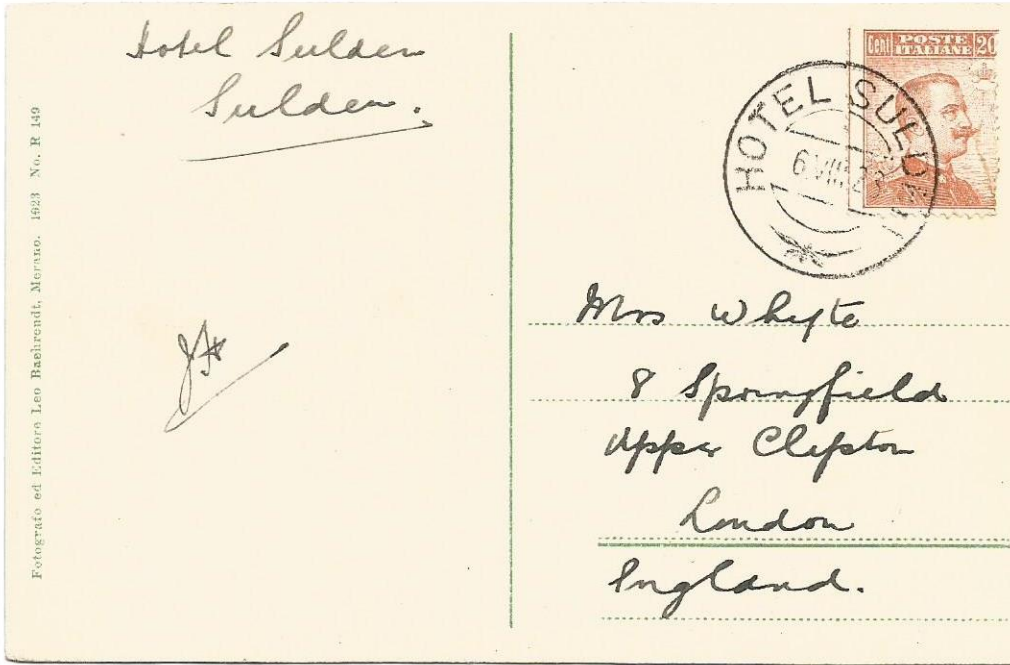 Hotel Sulden
Sulden.
Fotografo ed Editore Leo Baehrendt, Merano. 1923 No. R 149
Cent POSTE ITALIANE 20
HOTEL SULDEN
6 VIII 23
Mrs Whyte
8 Springfield
Upper Clapton
London
England.